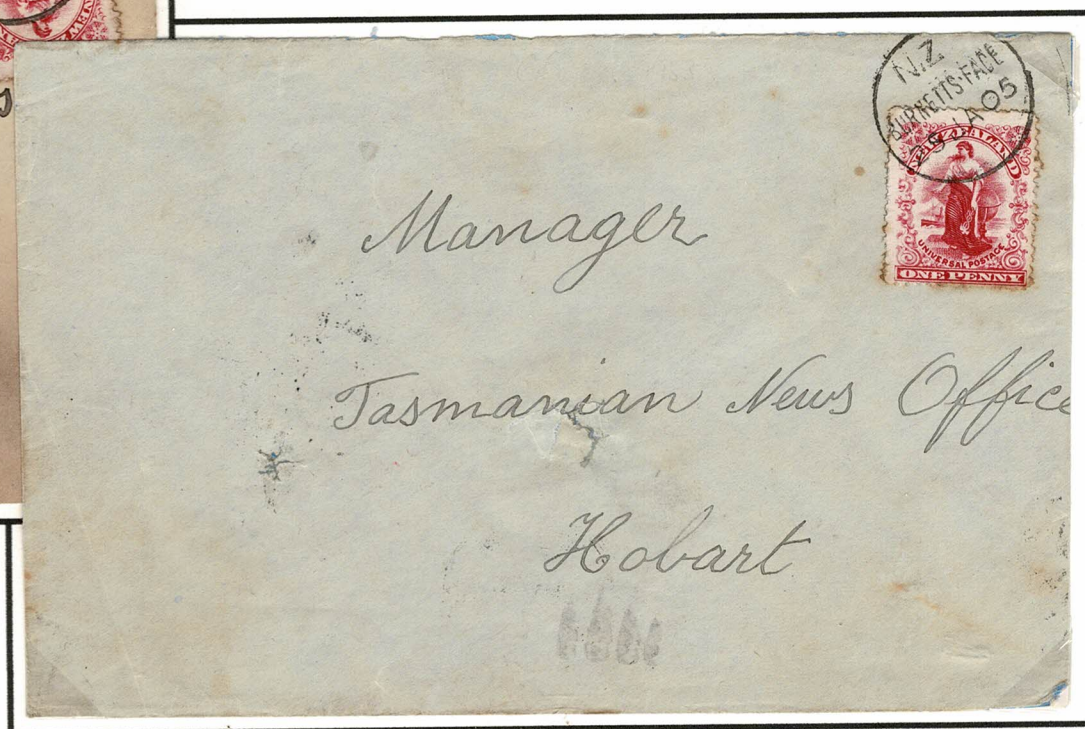 N.Z
BURNETTS-FACE
JA 05
NEW ZEALAND
UNIVERSAL POSTAGE
ONE PENNY
Manager
Tasmanian News Office
Hobart